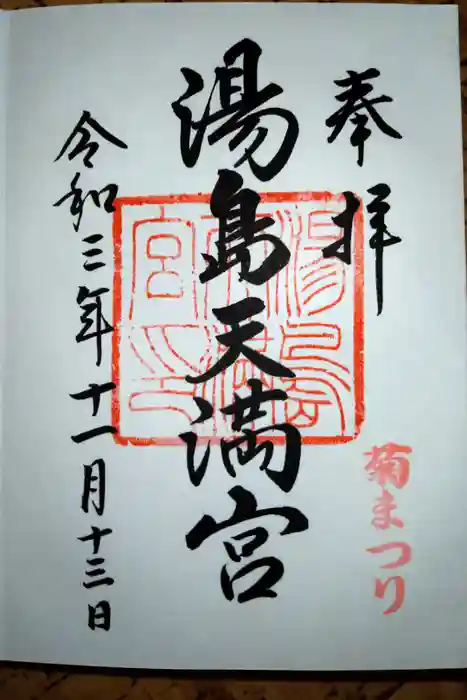 奉拝
湯島天満宮
令和三年十一月十三日
菊まつり
湯島
天満
宮印